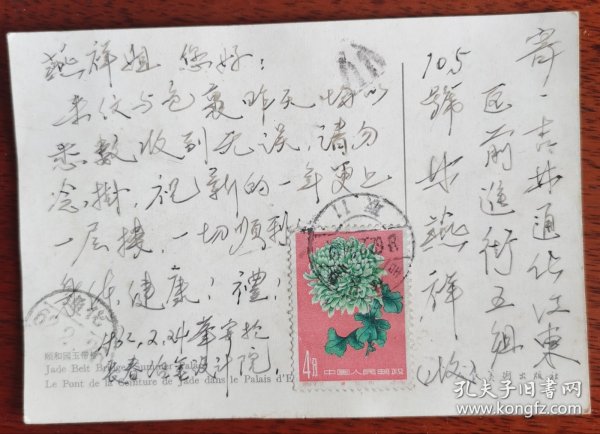 燕祥姐 您好：
来仪与包裹昨天均以
悉数收到无误，请勿
念掛，祝新的一年更上
一层楼，一切顺利
身体健康；禮！
62.2.24
长春冶金设计院
頤和園玉帶橋
Jade Belt Bridge, Summer Palace
Le Pont de la Ceinture de Jade dans le Palais d'E
寄·吉林通化江東
区前進街五组
105號 林燕祥
(收)
4分
中国人民邮政
美術出版社
孔夫子旧书网
www.kongfz.com